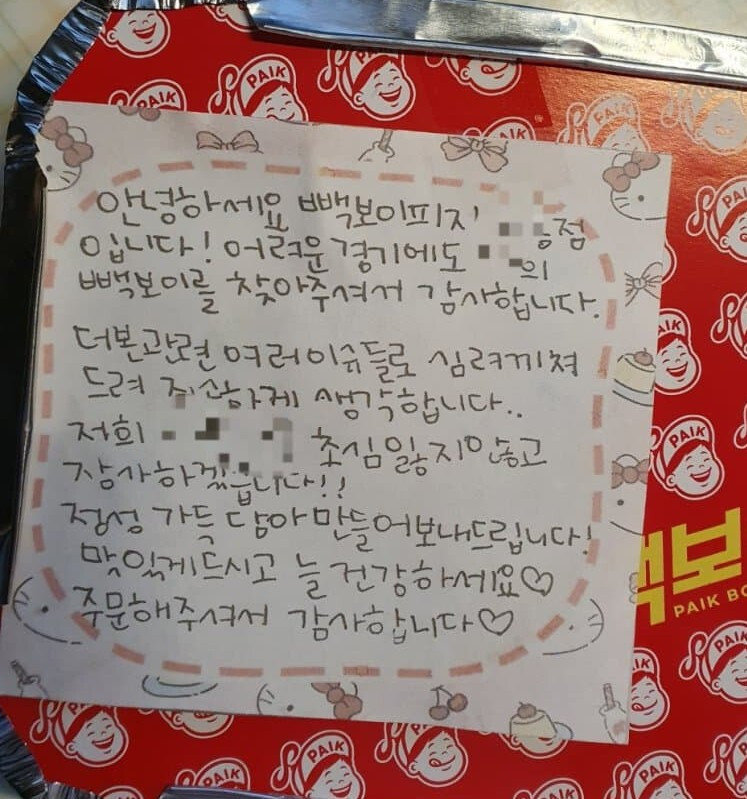 안녕하세요 빽보이피자 점
입니다! 어려운 경기에도 의
빽보이를 찾아주셔서 감사합니다.
더본관련 여러이슈들로 심려끼쳐
드려 죄송하게 생각합니다..
저희 초심잃지안놓고
장사하겠습니다!!
정성 가득 담아만들어보내드립니다!
맛있게드시고 늘 건강하세요♡
주문해주셔서 감사합니다♡
백보
PAIK BO
PAIK
PAIK
PAIK
PAIK
PAIK
PAIK
PAIK
PAIK